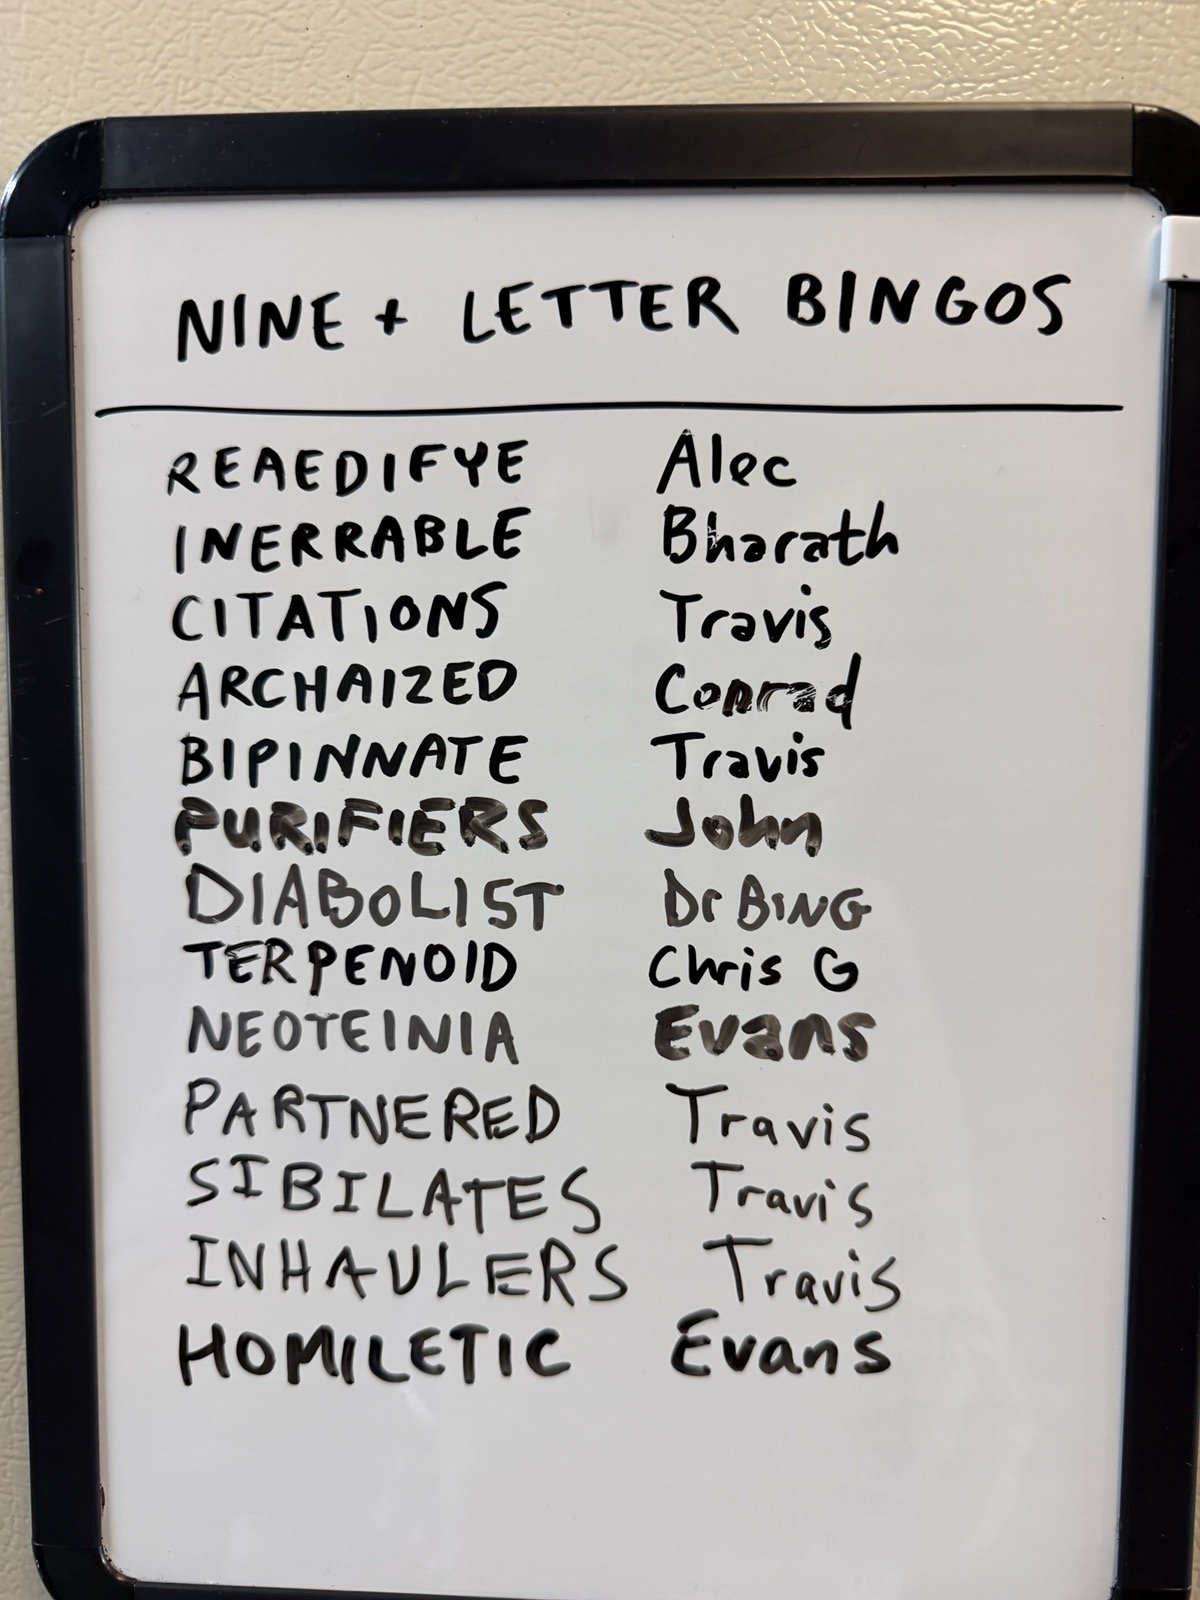 NINE + LETTER BINGOS
REAEDIFYE Alec
INERRABLE Bharath
CITATIONS Travis
ARCHAIZED Conrad
BIPINNATE Travis
PURIFIERS John
DIABOLIST Dr BING
TERPENOID Chris G
NEOTEINIA Evans
PARTNERED Travis
SIBILATES Travis
INHAULERS Travis
HOMILETIC Evans